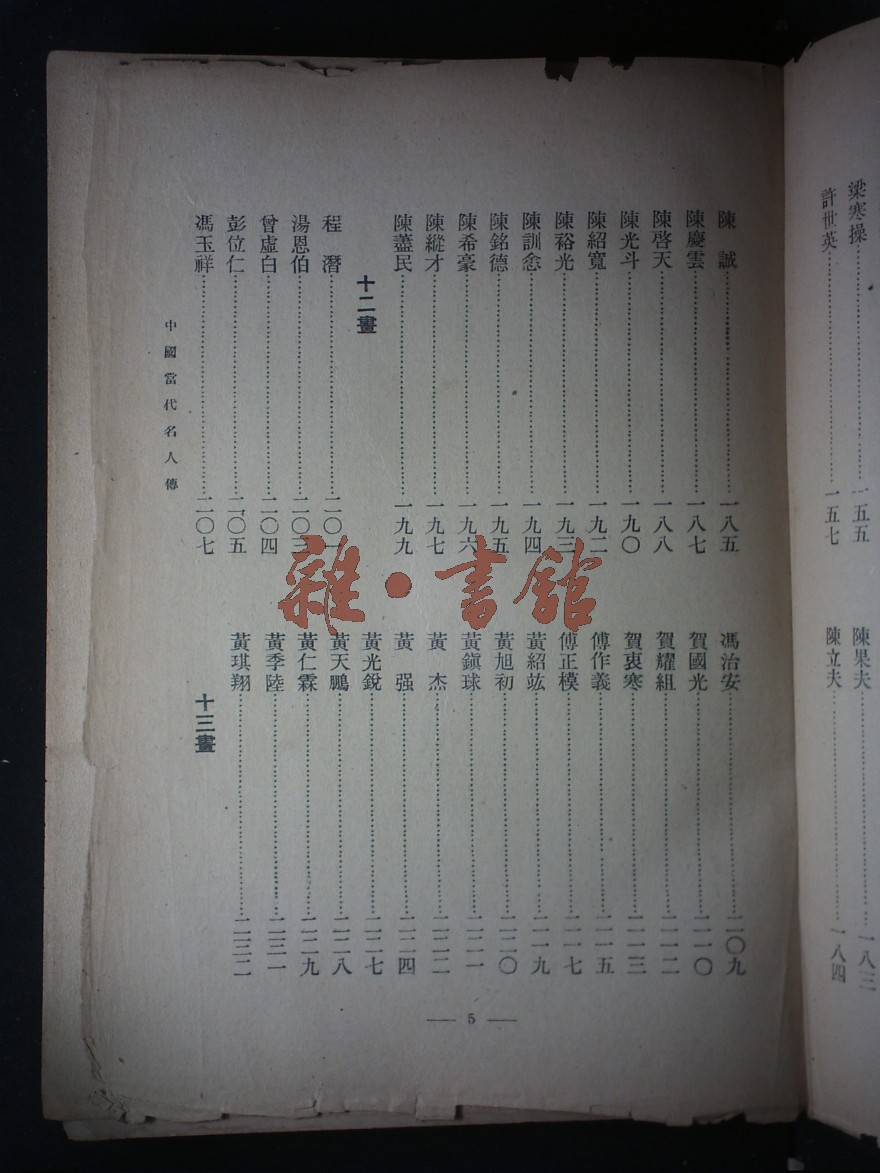 梁寒操……一五五
許世英……一五七
陳果夫……一八三
陳立夫……一八四
陳　誠……一八五
陳慶雲……一八七
陳啓天……一八八
陳光斗……一九〇
陳紹寬……一九二
陳裕光……一九三
陳訓悆……一九四
陳銘德……一九五
陳希豪……一九六
陳縱才……一九七
陳藎民……一九九
十二畫
程　潛……二〇一
湯恩伯……二〇三
曾虛白……二〇四
彭位仁……二〇五
馮玉祥……二〇七
馮治安……二〇九
賀國光……二一〇
賀耀組……二一二
賀衷寒……二一三
傅作義……二一五
傅正模……二一七
黃紹竑……二一九
黃旭初……二二〇
黃鎭球……二二一
黃　杰……二二二
黃　强……二二四
黃光銳……二二七
黃天鵬……二二八
黃仁霖……二二九
黃季陸……二三一
黃琪翔……二三二
十三畫
中國當代名人傳
— 5 —
雜·書館